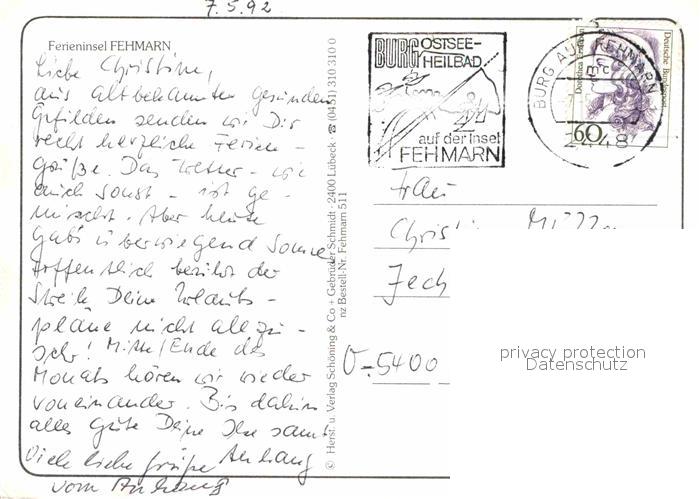 7.5.92
Ferieninsel FEHMARN
Liebe Christine,
aus altbekannten gesunden
Gefilden senden wir Dir
recht herzliche Ferien-
grüße. Das Wetter - wie
auch sonst - ist ge-
mischt. Aber heute
gab's überwiegend Sonne
Hoffentlich berührt der
Streik Deine Urlaubs-
pläne nicht allzu-
sehr! Mitte/Ende des
Monats hören wir wieder
voneinander. Bis dahin
alles Gute Deine Ilse samt
Anhang
Viele liebe Grüße
vom Anhang
© Herst. u. Verlag Schöning & Co + Gebrüder Schmidt · 2400 Lübeck · ☎ (04 51) 310 310 0
nz Bestell-Nr. Fehmarn 511
BURG OSTSEE-
HEILBAD
auf der Insel
FEHMARN
BURG AUF FEHMARN
Deutsche Bundespost
60
Frau
Christ
Zech
O-5400
privacy protection
Datenschutz